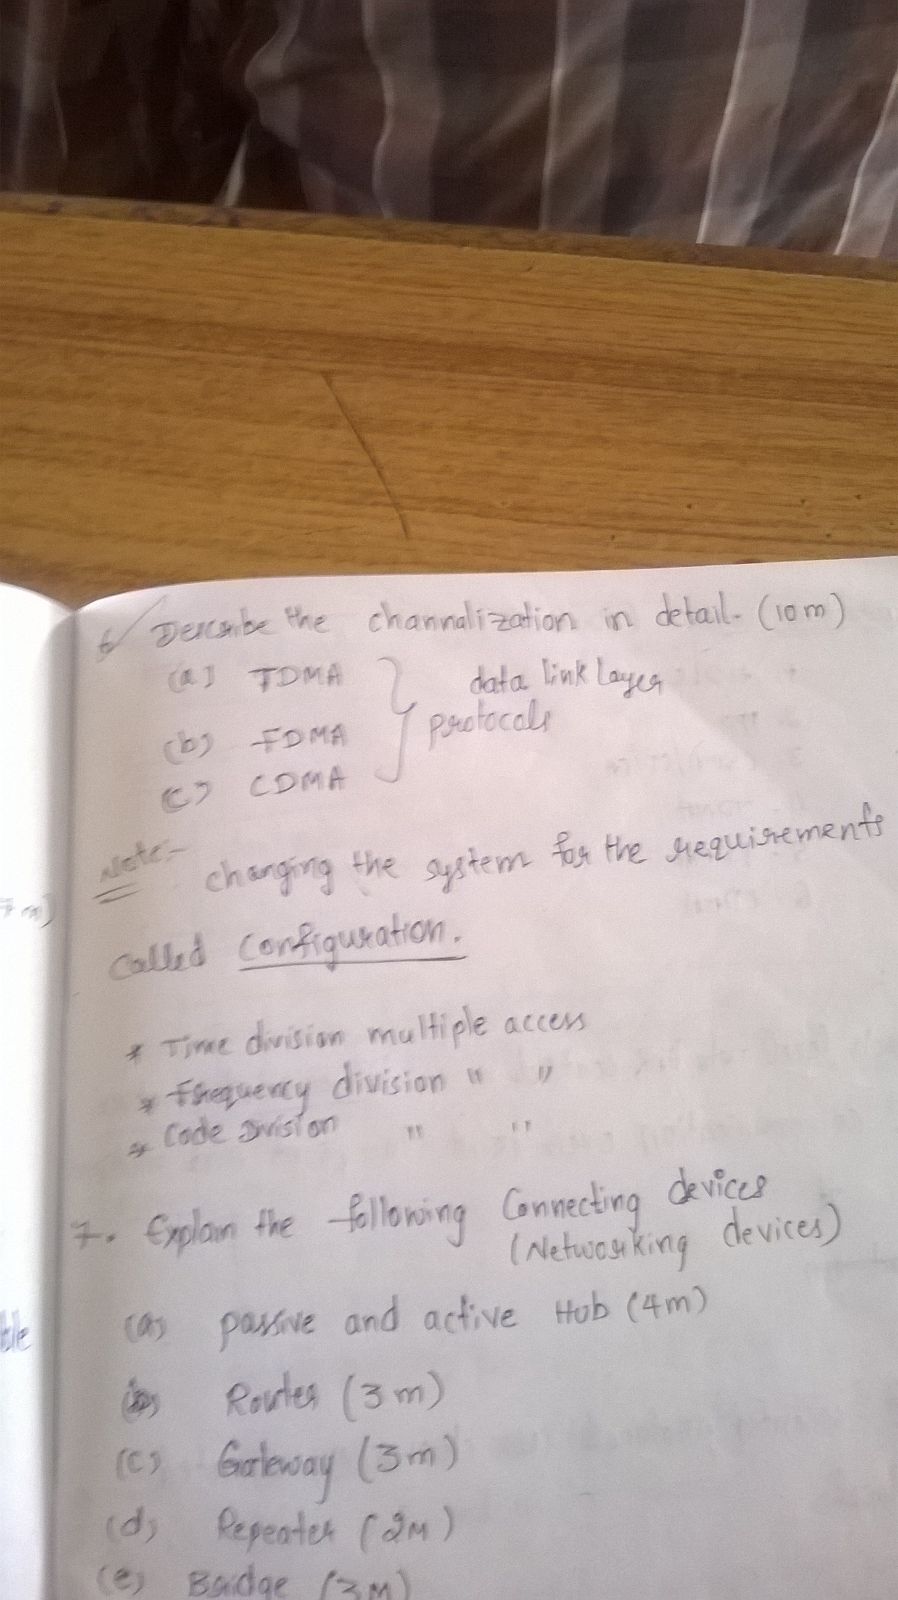 6 Describe the channalization in detail. (10m)
(a) TDMA
(b) FDMA
(c) CDMA
data link layer
protocals
Note:-
changing the system for the requirements
called configuration.
* Time division multiple access
* Frequency division " "
* Code Division " "
7. Explain the following Connecting devices
(Networking devices)
(a) passive and active Hub (4m)
(b) Router (3m)
(c) Gateway (3m)
(d) Repeater (2M)
(e) Bridge (3M)